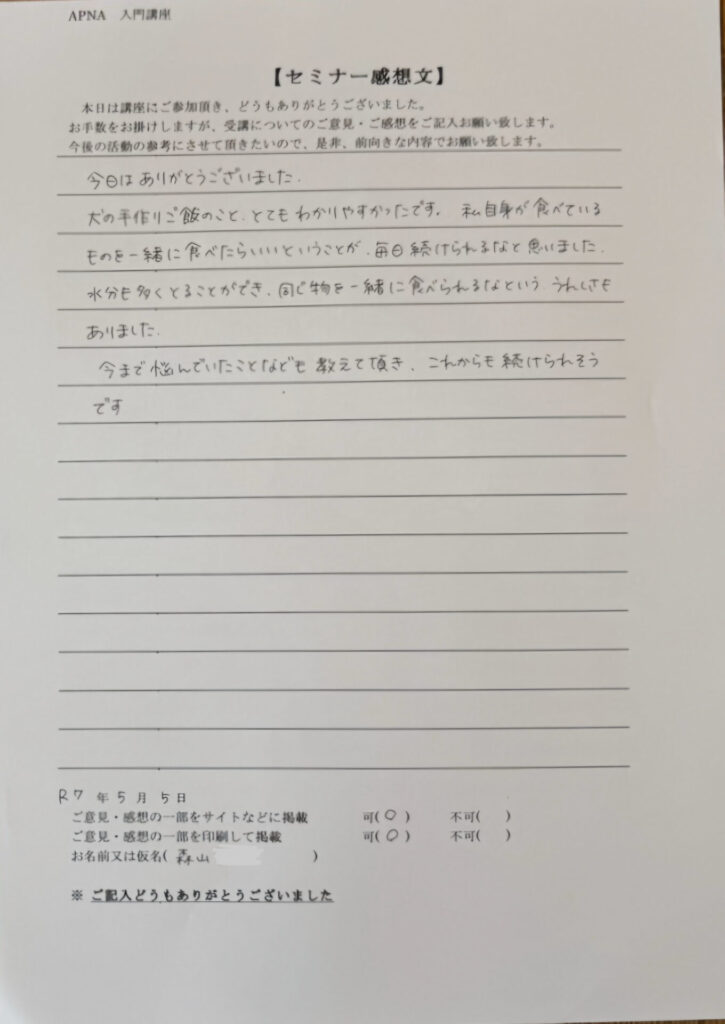 APNA 入門講座
【セミナー感想文】
本日は講座にご参加頂き、どうもありがとうございました。
お手数をお掛けしますが、受講についてのご意見・ご感想をご記入お願い致します。
今後の活動の参考にさせて頂きたいので、是非、前向きな内容でお願い致します。
今日はありがとうございました.
犬の手作りご飯のこと、とてもわかりやすかったです。 私自身が食べている
ものを一緒に食べたらいいということが、毎日続けられるなと思いました.
水分も多くとることができ、同じ物を一緒に食べられるなという、うれしさも
ありました.
今まで悩んでいたことなども教えて頂き、これからも続けられそう
です
R7 年 5 月 5 日
ご意見・感想の一部をサイトなどに掲載 可(○) 不可( )
ご意見・感想の一部を印刷して掲載 可(○) 不可( )
お名前又は仮名( 森山 )
※ ご記入どうもありがとうございました